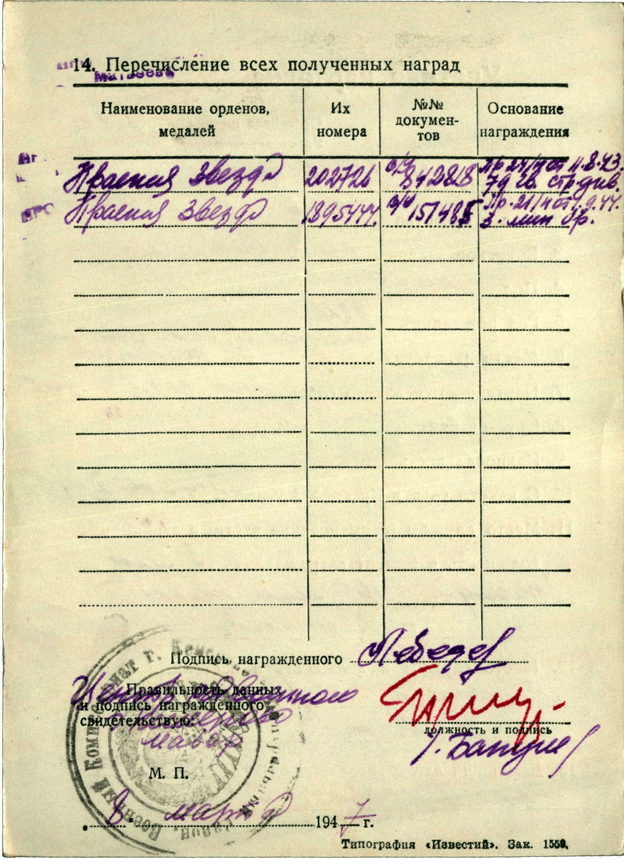 14. Перечисление всех полученных наград
Наименование орденов, медалей
Их номера
№№ докумен-тов
Основание награждения
Красная звезда 202726 о/к 842818 Пр 24/н от 11.8.43. 7д гв. стр див.
Красная звезда 1395444. о/к 151485 Пр. 21/н от 1.9.44. 3. мин бр.
Подпись награжденного Лебедев
Правильность данных
и подпись награжденного
свидетельствую:
майор
должность и подпись
М. П.
Военный Комиссариат г.
8 марта 1947 г.
Типография «Известий». Зак. 1559.